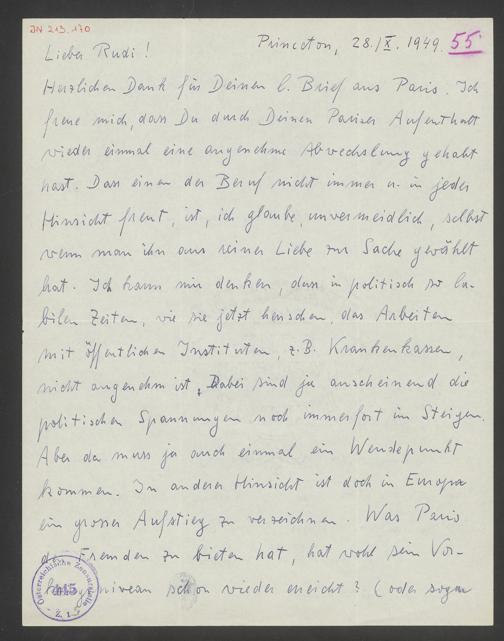 IN 213.170
Princeton, 28./IX. 1949.
55
Lieber Rudi!
Herzlichen Dank für Deinen l. Brief aus Paris. Ich
freue mich, dass Du durch Deinen Pariser Aufenthalt
wieder einmal eine angenehme Abwechslung gehabt
hast. Dass einen der Beruf nicht immer u. in jeder
Hinsicht freut, ist, ich glaube, unvermeidlich, selbst
wenn man ihn aus reiner Liebe zur Sache gewählt
hat. Ich kann mir denken, dass in politisch so la-
bilen Zeiten, wie sie jetzt herrschen, das Arbeiten
mit öffentlichen Instituten, z.B. Krankenkassen,
nicht angenehm ist. Dabei sind ja anscheinend die
politischen Spannungen noch immerfort im Steigen.
Aber da muss ja auch einmal ein Wendepunkt
kommen. In anderer Hinsicht ist doch in Europa
ein grosser Aufstieg zu verzeichnen. Was Paris
den Fremden zu bieten hat, hat wohl sein Vor-
kriegsniveau schon wieder erreicht? (oder sogar
Österreichische Zensurstelle
415